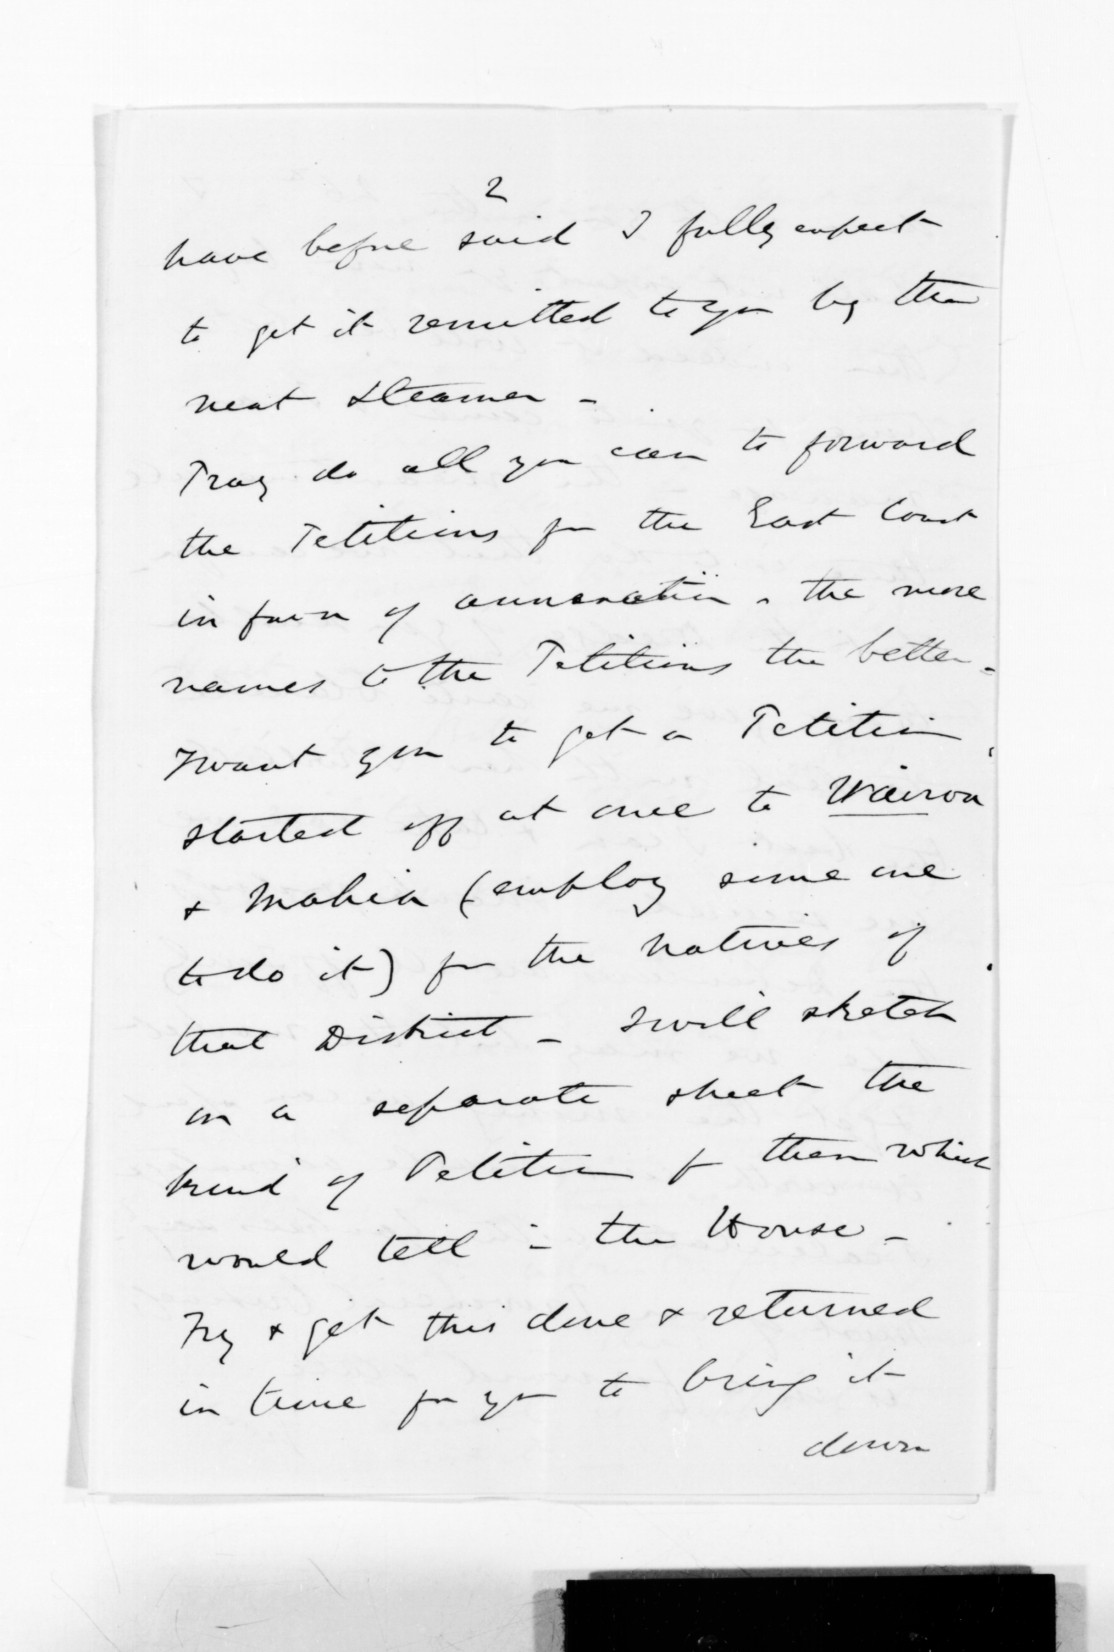 2
have before said I fully expect
to get it remitted to you by the
next Steamer -
Pray do all you can to forward
the Petitions for the East Coast
in favor of annexation - the more
names to the Petitions the better -
I want you to get a Petition
started off at once to Wairoa
& Mahia (employ some one
to do it) for the Natives of
that District - I will sketch
on a separate sheet the
kind of Petition for them which
would tell in the House -
Try & get this done & returned
in time for you to bring it
down